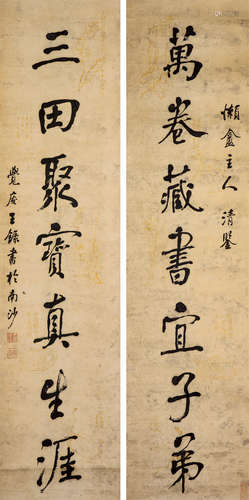 懶盦主人清鑒
萬卷藏書宜子弟
三田聚寶真生涯
覺厂王錄書於南沙